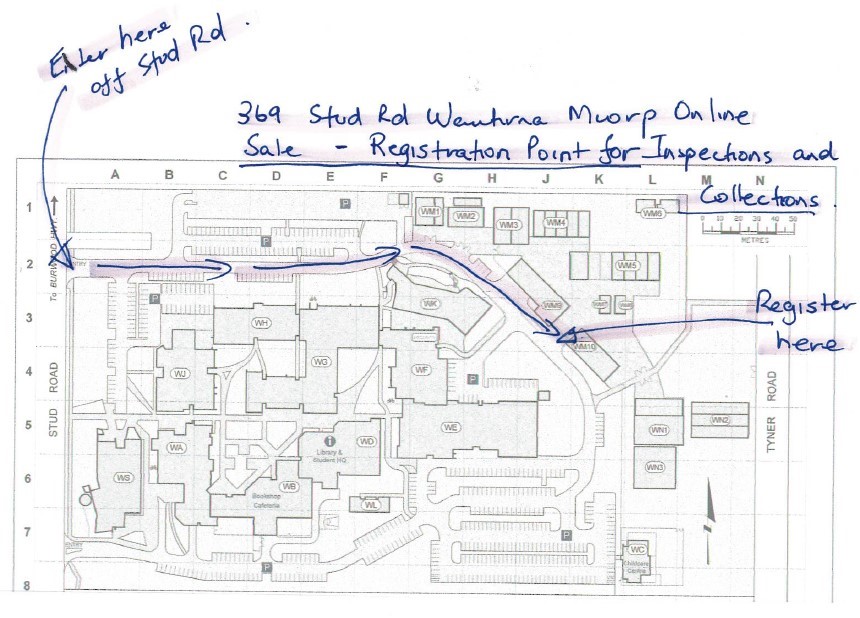 Enter here
off Stud Rd.
369 Stud Rd Wantirna Mworp Online
Sale - Registration Point for Inspections and
Collections.
A B C D E F G H J K L M N
1
2
3
4
5
6
7
8
To BURWOOD HWY.
ENTRY
STUD ROAD
TYNER ROAD
P
P
P
P
P
P
WM1
WM2
WM3
WM4
WM6
0 10 20 30 40 50
METRES
WM5
WM9
WM10
WK
WH
WJ
WG
WF
WE
WA
WS
WD
Library &
Student HQ
WB
Bookshop
Cafeteria
WL
WN1
WN2
WN3
WC
Childcare
Centre
ENTRY
Register
here